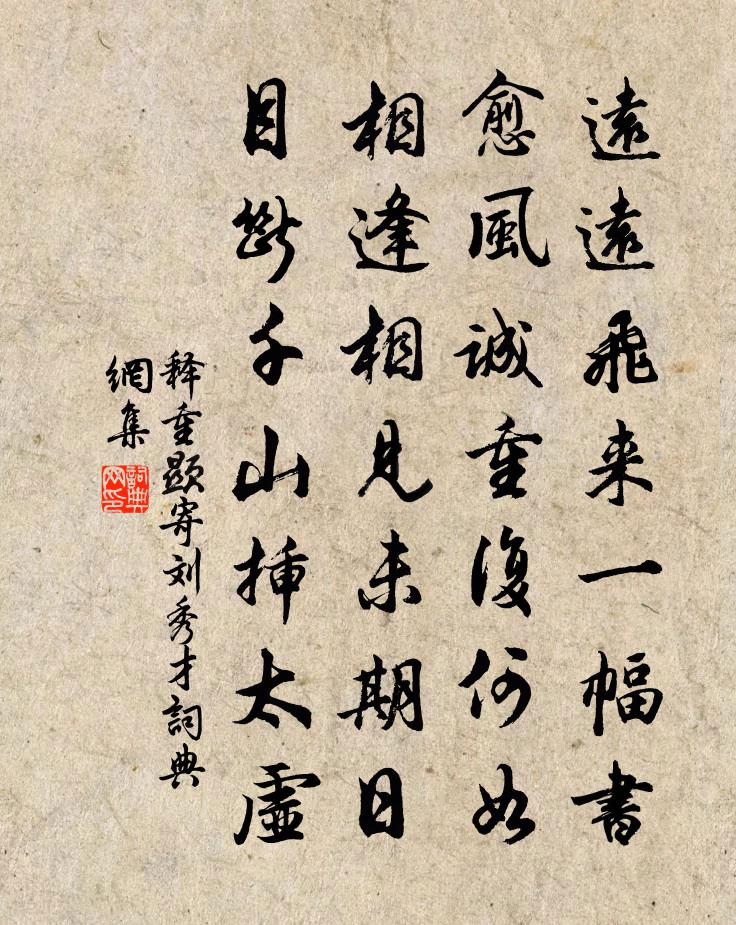 遠遠飛来一幅書
愈風誠重復何如
相逢相見未期日
目断千山挿太虛
释重顯寄刘秀才詞典
網集
詞典
网印